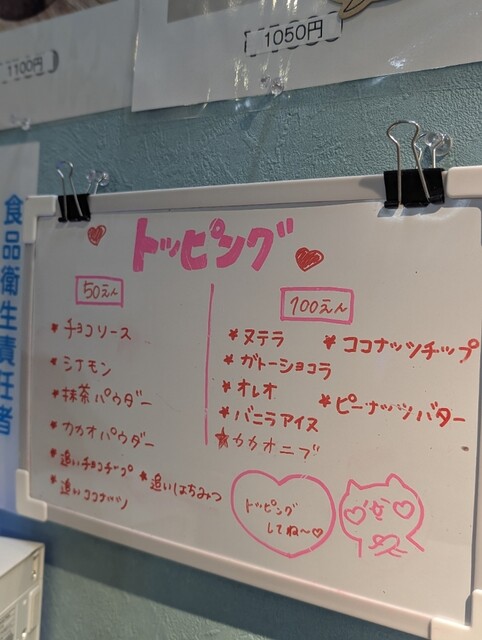 1100円
1050円
食品衛生責任者
トッピング
50えん
* チョコソース
* シナモン
* 抹茶パウダー
* カカオパウダー
* 追いチョコチップ
* 追いはちみつ
* 追いココナッツ
100えん
* ヌテラ
* ガトーショコラ
* オレオ
* バニラアイス
* カカオニブ
* ココナッツチップ
* ピーナッツバター
トッピング
してね〜♡